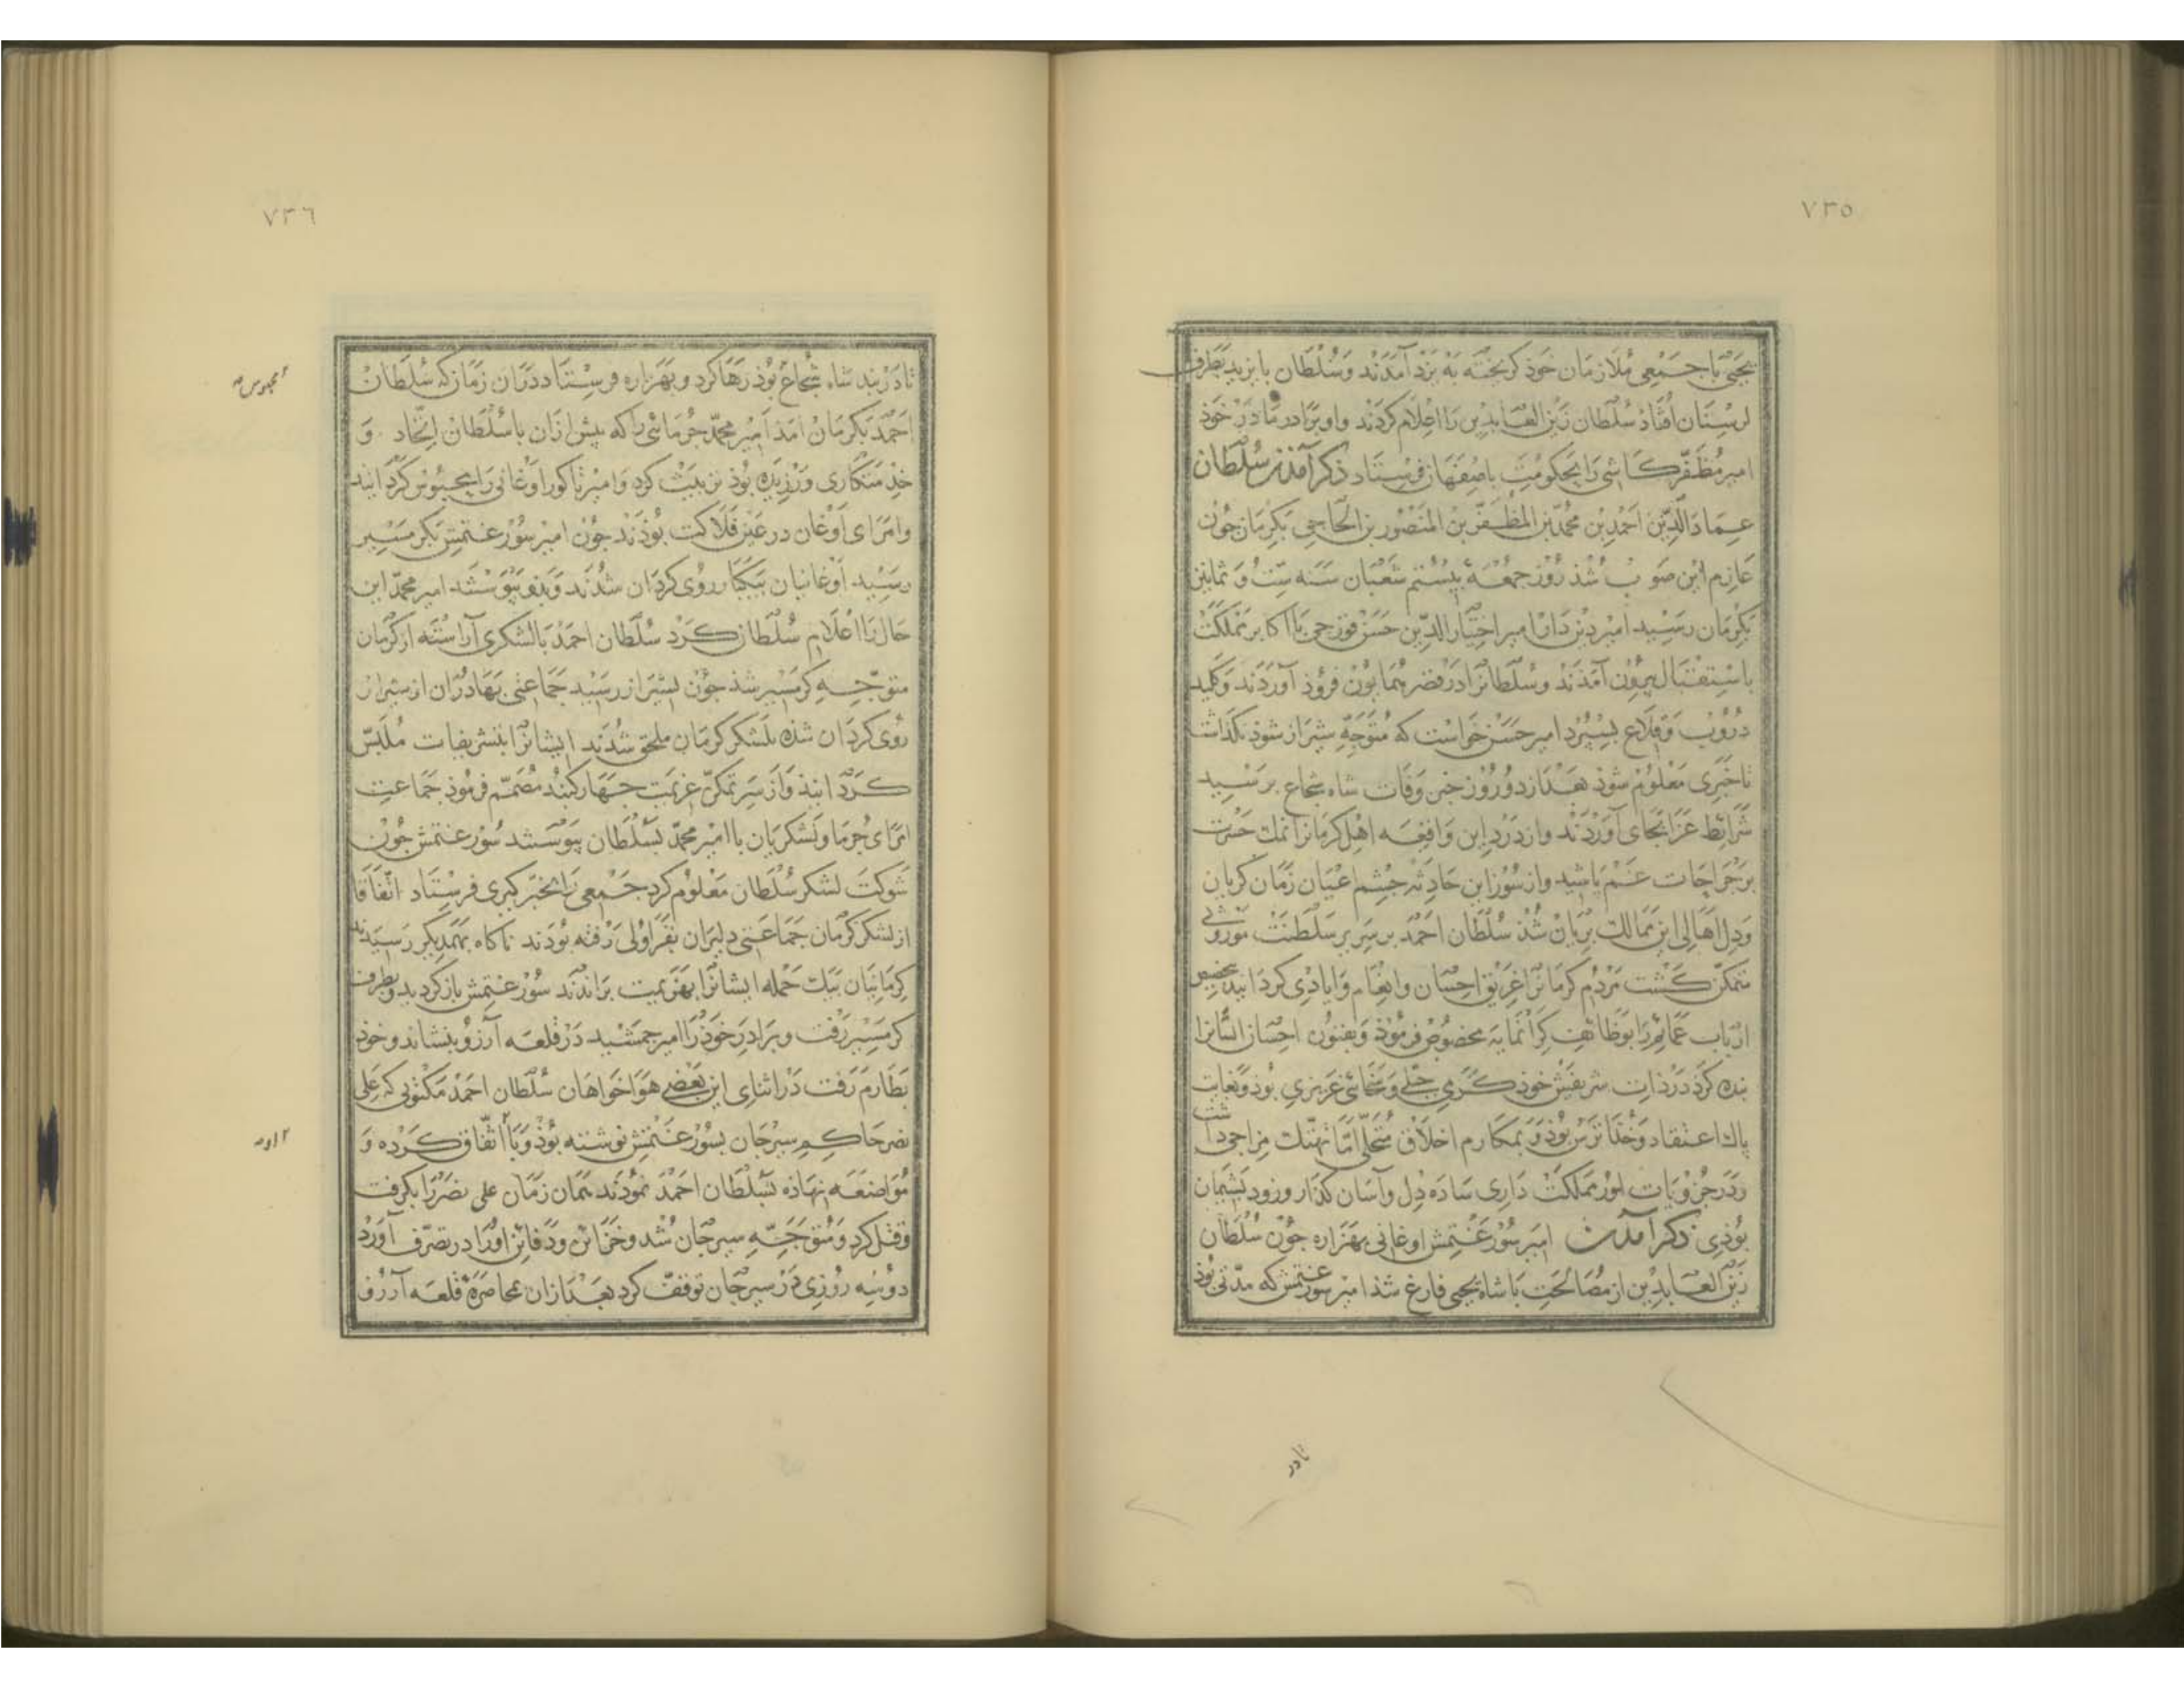 ٧٣٥
یحیی با جمعی ملازمان خوذ کریخته به یزد آمدند و سلطان بایزید بطرف
لرستان افتاد سلطان زین العابدین را اعلام کردند و او برادر مادر خوذ
امیر مظفر کاشی را بحکومت باصفهان فرستاد ذکر آمذن سلطان
عماد الدین احمد بن محمد بن المظفر بن المنصور بن الحاجی بکرمان جون
عازم این صوب شذ روز جمعه بیستم شعبان سنه ست و ثمانین
بکرمان رسید امیر دین دار امیر اختیار الدین حسن قورجی با اکابر مملکت
باستقبال بیرون آمذند و سلطان را در قصر همایون فروذ آوردند و کلید
دروب و قلاع بسپرد امیر حسن خواست که متوجه شیراز شوذ نکذاشت
تا خبری معلوم شوذ بعد از دو روز خبر وفات شاه شجاع برسید
شرائط عزا بجای آوردند و از درد این واقعه اهل کرمانرا نمک حسرت
بر جراحات غم باشید و از سوز این حادثه جشم اعیان زمان کریان
و دل اهالی این ممالک بریان شذ سلطان احمد بر سریر سلطنت موروثی
متمکن کشت مردم کرمانرا غریق احسان و انعام و ایادی کردانید بتخصیص
ارباب عمائم را بوظائف کرانمایه مخصوص فرموذ و بفنون احسان انسانرا
بنده کرد در ذات شریفش خوذ کرمی جبلی و سخائی غریزی بوذ و بغایت
پاک اعتقاد و خدا ترس بوذ و بمکارم اخلاق متحلی اما تهتک مزاجی داشت
و در جزویات امور مملکت داری ساده دل و آسان کذار و زود بشیمان
بوذی ذکر آمدن امیر سورغتمش اوغانی بهزاره جون سلطان
زین العابدین از مصالحت با شاه یحیی فارغ شذ امیر سورغتمش که مدتی بوذ
تا در
٧٣٦
تا در بند شاه شجاع بوذ رها کرد و بهزاره فرستاد در ان زمان که سلطان
احمد بکرمان آمذ امیر محمد جرمائی را که پیش ازان با سلطان اتحاد و
خذمتکاری ورزیده بوذ تربیت کرد و امیر تاکور اوغانی را محبوس کردانید
محبوس
و امرای اوغان در عین فلاکت بوذند جون امیر سورغتمش بکرمسیر
رسید اوغانیان بیکبار روی کردان شدند و بدو پیوستند امیر محمد این
حال را اعلام سلطان کرد سلطان احمد با لشکری آراسته از کرمان
متوجه کرمسیر شذ جون بسیراز رسید جماعتی بهادران از شیراز
روی کردان شذه بلشکر کرمان ملحق شدند ایشانرا بتشریفات ملبس
کردانید و از سر تمکن عزیمت جهار کنبد مصمم فرموذ جماعت
امرای جرما و لشکریان با امیر محمد بسلطان پیوستند سورغتمش جون
شوکت لشکر سلطان معلوم کرد جمعی را بخبر کیری فرستاد اتفاقا
از لشکر کرمان جماعتی دلیران بقراولی رفته بودند ناکاه بهمدیکر رسیدند
کرمانیان بیک حمله ایشانرا بهزیمت براندند سورغتمش باز کردید و بطرف
کرمسیر رفت و برادر خوذ را امیر جمشید در قلعه آرزو بنشاند و خود
بطارم رفت در اثنای این بعضی هواخواهان سلطان احمد مکتوبی که علی
نصر حاکم سیرجان بسورغتمش نوشته بوذ و با او اتفاق کرده و
او
مواضعه نهاذه بسلطان احمد نموذند همان زمان علی نصر را بکرفت
و قتل کرد و متوجه سیرجان شد و خزائن و دفائن او را در تصرف آورد
دو سه روزی در سیرجان توقف کرد بعد ازان بمحاصره قلعه آرزو